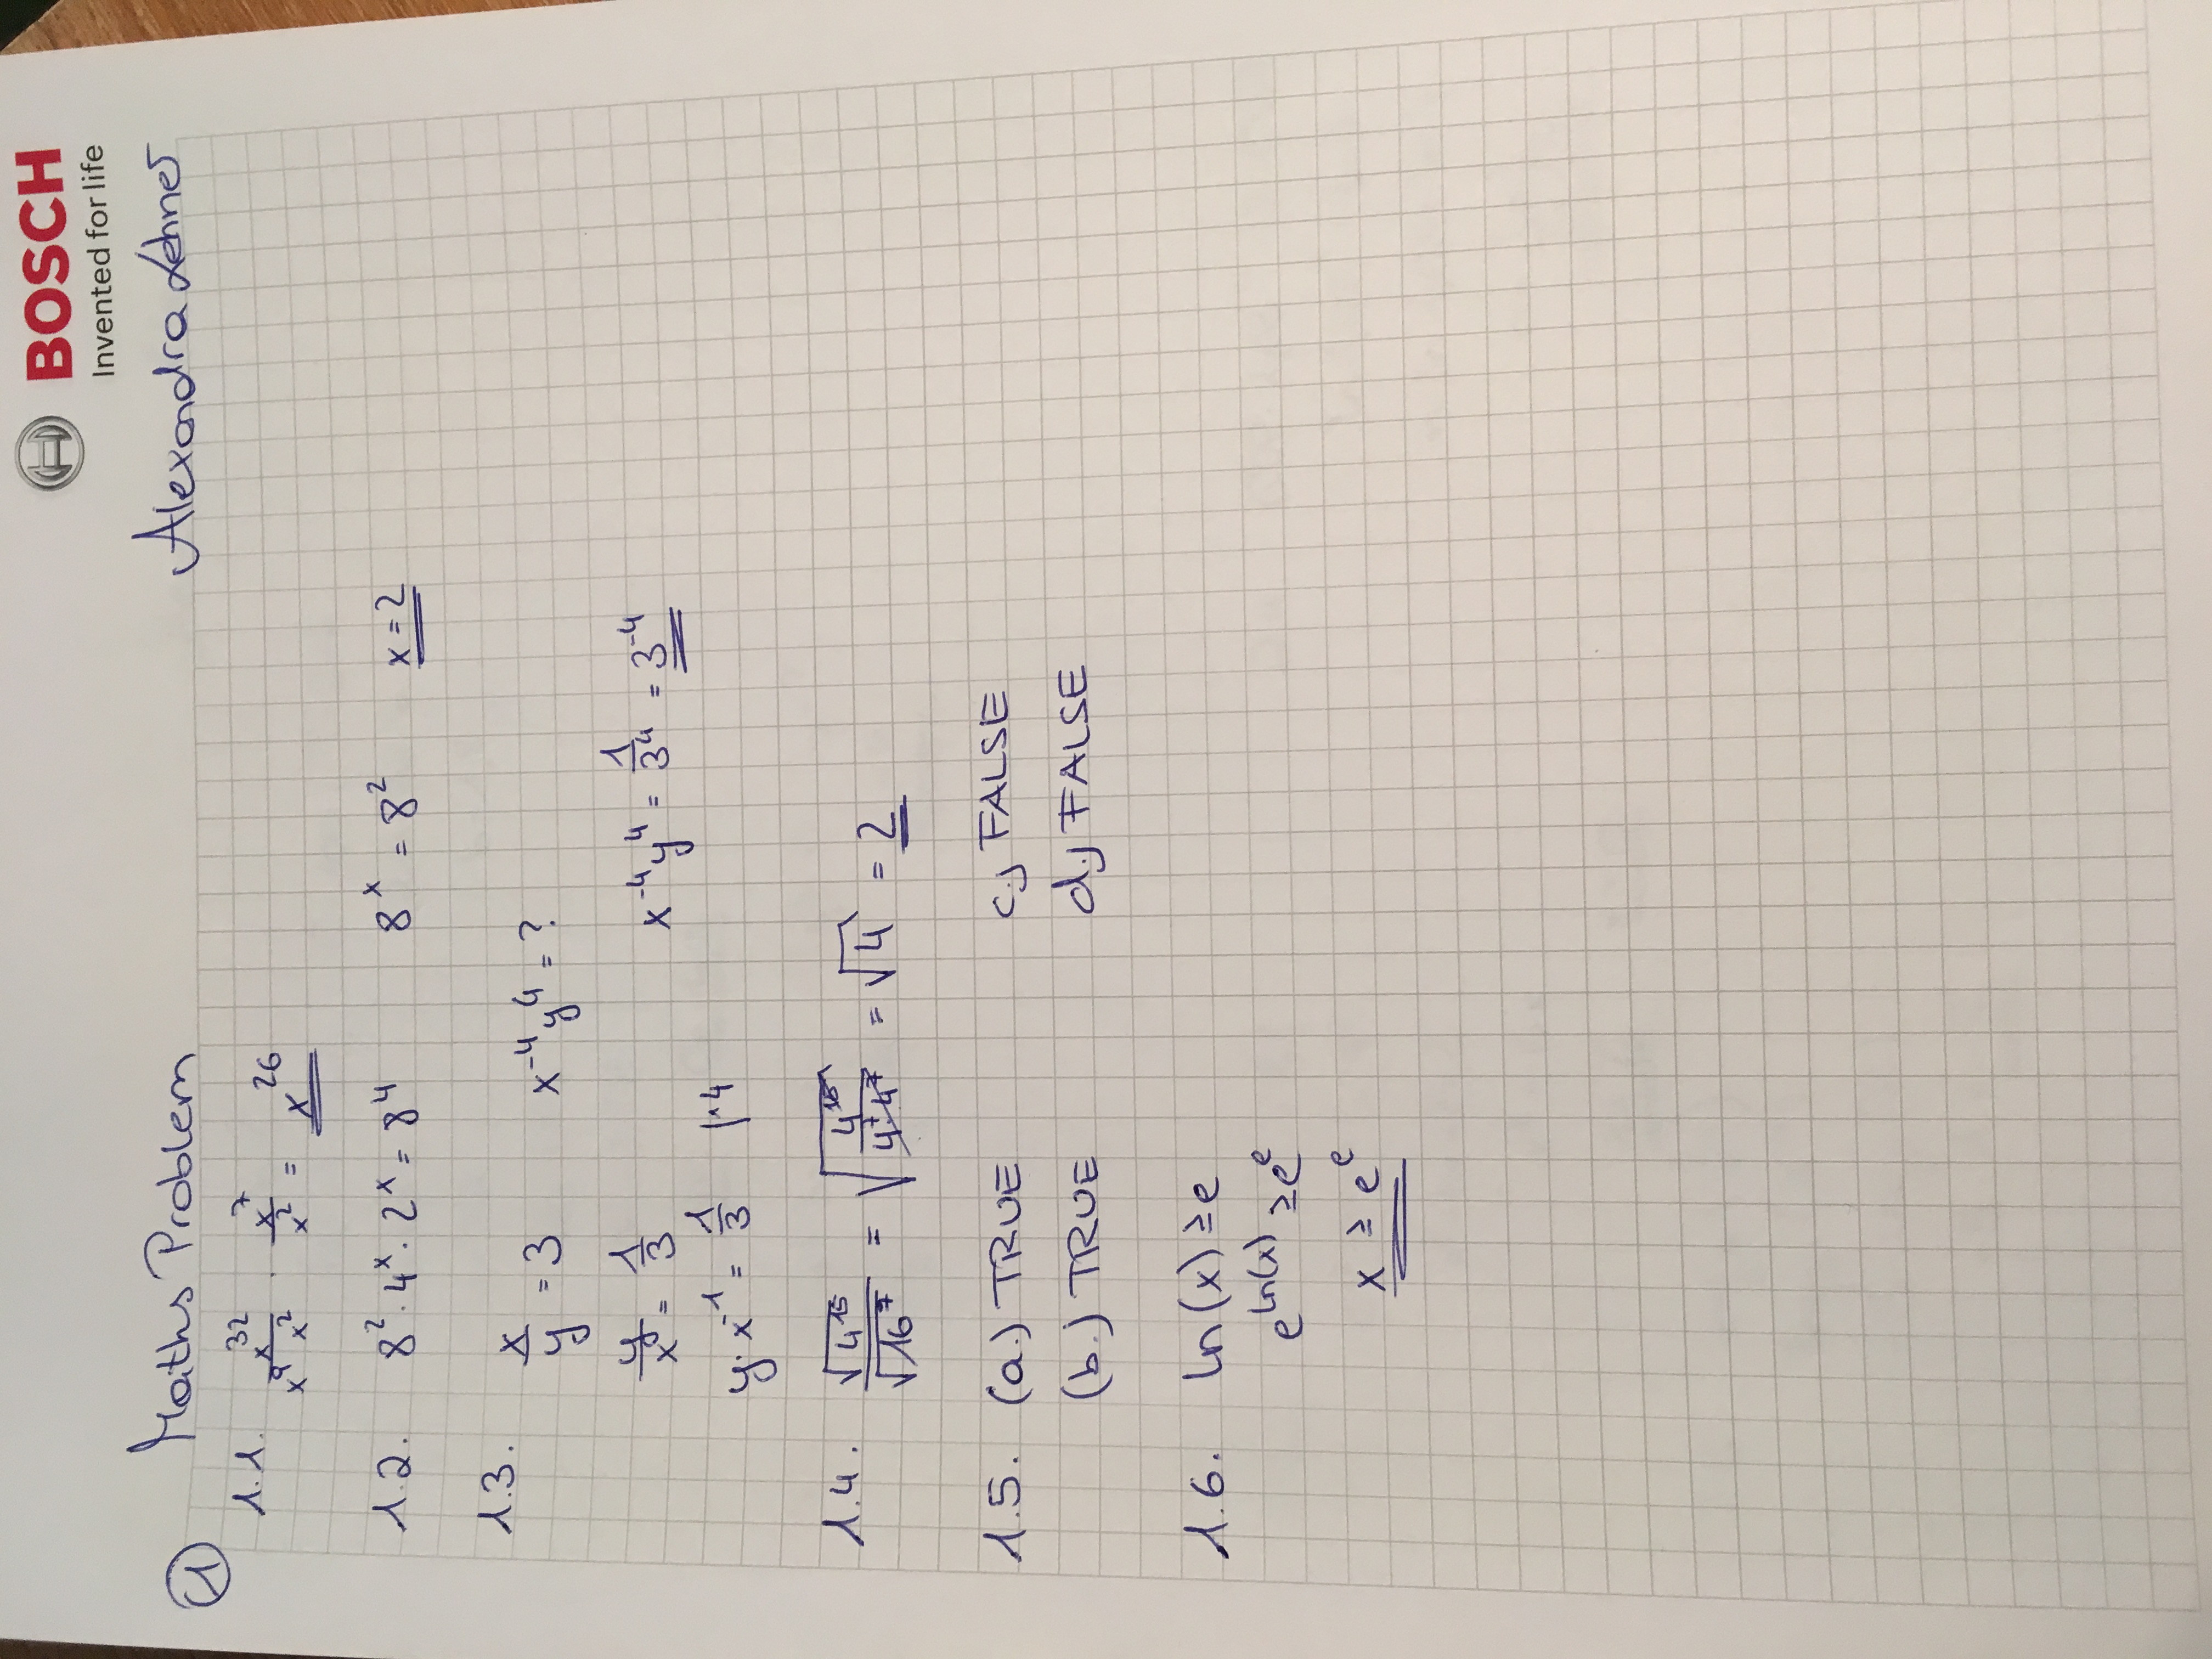 BOSCH
Invented for life
Maths Problem Alexandra Lehner
①
1.1. x³²/(x⁹ x²) · x⁷/x² = x²⁶
1.2. 8² · 4ˣ · 2ˣ = 8⁴ 8ˣ = 8² x = 2
1.3. x/y = 3 x⁻⁴y⁴ = ?
y/x = 1/3 x⁻⁴y⁴ = 1/3⁴ = 3⁻⁴
y · x⁻¹ = 1/3 |^4
1.4. √4¹⁵/√16⁷ = √(4¹⁵/(4⁷·4⁷)) = √4 = 2
1.5. (a.) TRUE c.) FALSE
(b.) TRUE d.) FALSE
1.6. ln(x) ≥ e
e^ln(x) ≥ e^e
x ≥ e^e